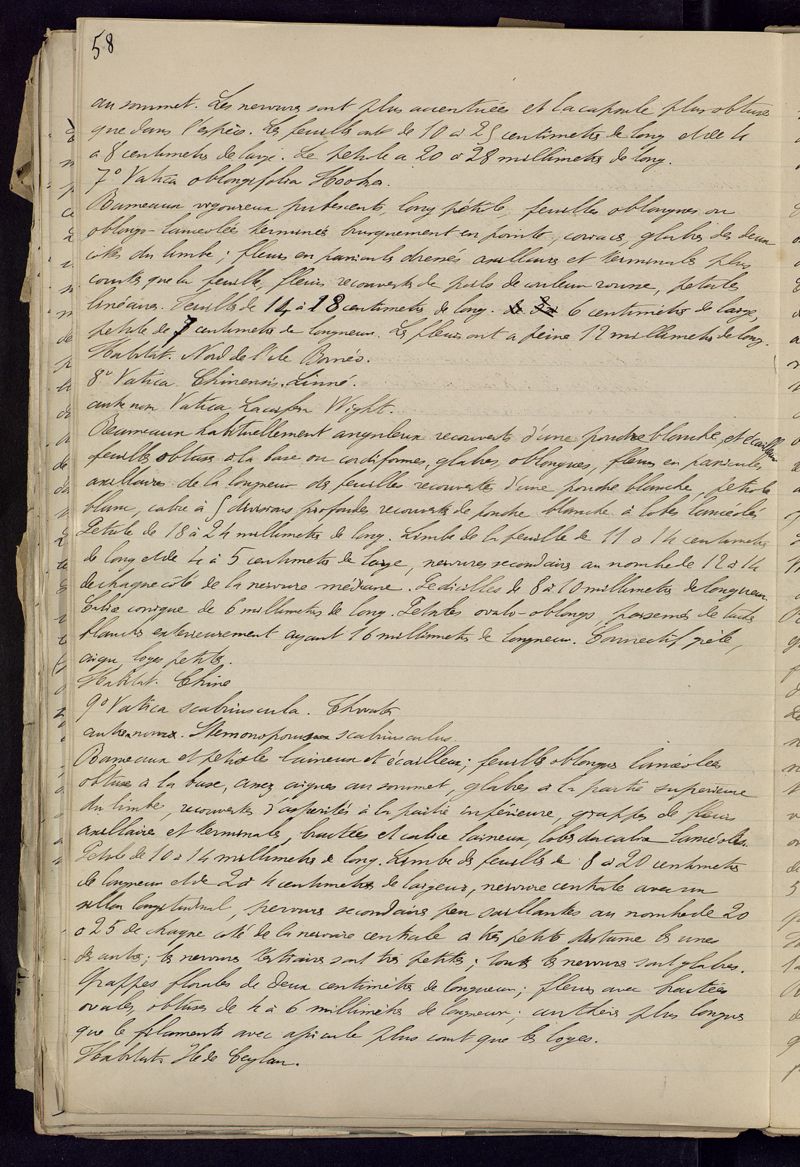 58
au sommet. Les nervures sont plus accentuées et la capsule plus obtuse
que dans l'espèce. Les feuilles ont de 10 à 25 centimètres de long et de 4
à 8 centimètres de large. Le pétiole a 20 à 28 millimètres de long.
7° Vatica oblongifolia Hooker.
Rameaux vigoureux pubescents, long pétiole, feuilles oblongues ou
oblongo-lancéolées terminées brusquement en pointe, coriaces, glabres des deux
côtés du limbe; fleurs en panicules dressées axillaires et terminales plus
courtes que la feuille, fleurs recouvertes de poils de couleur rousse, pétales
linéaires. Feuilles de 14 à 18 centimètres de long. 6 centimètres de large,
pétiole de 7 centimètres de longueur. Les fleurs ont à peine 12 millimètres de long.
Habitat. Nord de l'île Bornéo.
8° Vatica Chinensis. Linné.
autre nom Vatica Laccifera Wight.
Rameaux habituellement anguleux recouverts d'une poudre blanche, et écailleux
feuilles obtuses à la base ou cordiformes, glabres, oblongues, fleurs en panicules
axillaires de la longueur des feuilles recouvertes d'une poudre blanche, pétiole
blanc, calice à 5 divisions profondes recouverts de poudre blanche à lobes lancéolés
Pétiole de 18 à 24 millimètres de long. Limbe de la feuille de 11 à 14 centimètres
de long et de 4 à 5 centimètres de large, nervures secondaires au nombre de 12 à 14
de chaque côté de la nervure médiane. Pédicelles de 8 à 10 millimètres de longueur.
Calice conique de 6 millimètres de long. Pétales ovato-oblongs, parsemés de
blanches extérieurement ayant 16 millimètres de longueur. Connectif grêle,
aigu, loges petites.
Habitat. Chine
9° Vatica scabriuscula. Thwaites
autre nom. Stemonoporus scabriusculus.
Rameaux et pétiole laineux et écailleux; feuilles oblongues lancéolées
obtuses à la base, assez aigues au sommet, glabres à la partie supérieure
du limbe, recouvertes d'aspérités à la partie inférieure, grappes de fleurs
axillaires et terminales, bractées et calice laineux, lobes du calice lancéolés.
Pétiole de 10 à 14 millimètres de long. Limbe des feuilles de 8 à 20 centimètres
de longueur et de 2 à 4 centimètres de largeur, nervure centrale avec un
sillon longitudinal, nervures secondaires peu saillantes au nombre de 20
à 25 de chaque côté de la nervure centrale à très petite distance les unes
des autres; les nervures tertiaires sont très petites; toutes les nervures sont glabres.
Grappes florales de deux centimètres de longueur; fleurs avec bractées
ovales, obtuses de 4 à 6 millimètres de longueur; anthères plus longues
que le filaments avec apicule plus court que les loges.
Habitat. Ile de Ceylan.